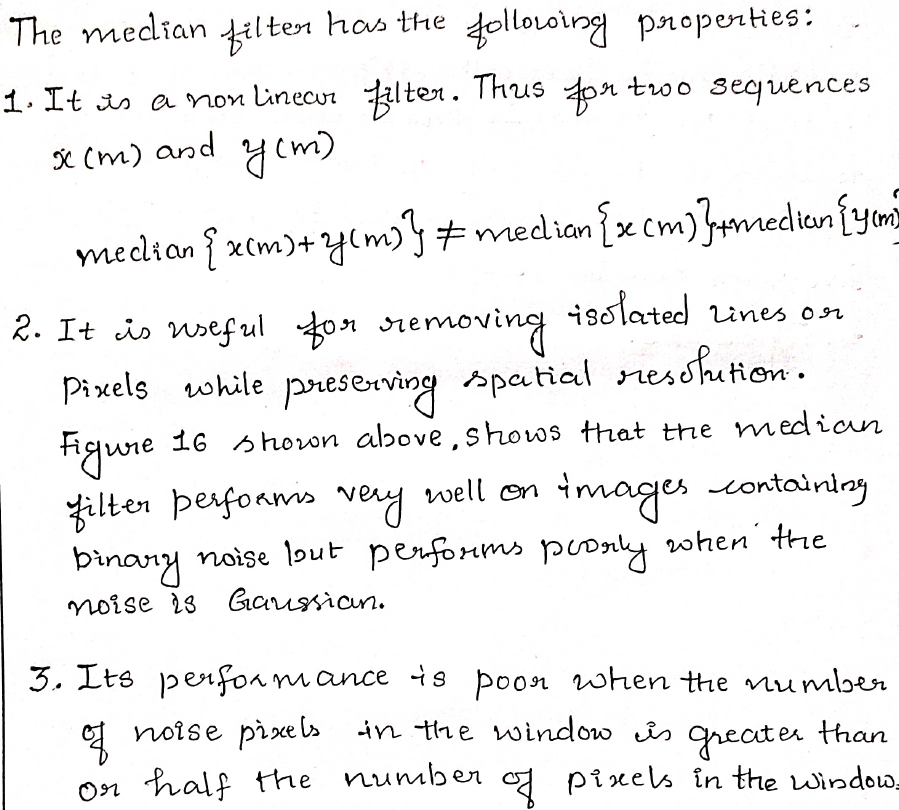 The median filter has the following properties:
1. It is a non linear filter. Thus for two sequences
x(m) and y(m)
median{x(m)+y(m)} ≠ median{x(m)}+median{y(m)}
2. It is useful for removing isolated lines or
Pixels while preserving spatial resolution.
Figure 16 shown above, shows that the median
filter performs very well on images containing
binary noise but performs poorly when the
noise is Gaussian.
3. Its performance is poor when the number
of noise pixels in the window is greater than
or half the number of pixels in the window.